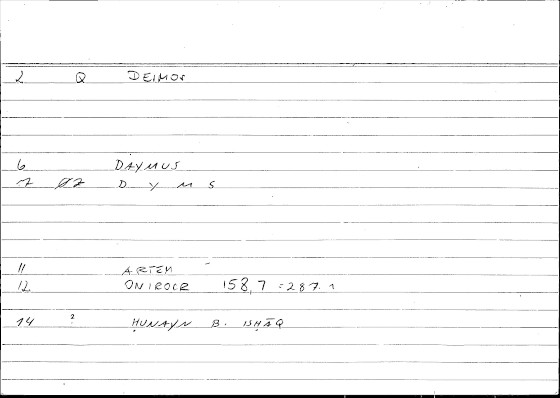 2 Q DEIMOS
6 DAYMUS
7 02 D Y M S
11 ARTEM
12 ONIROCR 158,7 = 287.1
14 2 ḤUNAYN B. ISḤĀQ